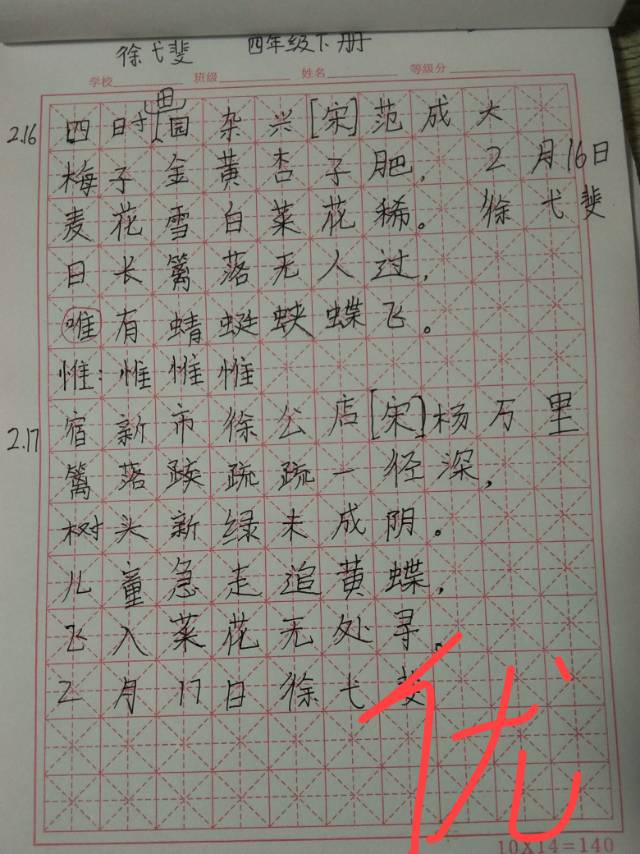 徐弋斐 四年级下册
学校 班级 姓名 等级分
2.16 四时田园杂兴[宋]范成大
梅子金黄杏子肥, 2月16日
麦花雪白菜花稀。 徐弋斐
日长篱落无人过,
唯有蜻蜓蛱蝶飞。
惟:惟惟惟
2.17 宿新市徐公店[宋]杨万里
篱落疏疏一径深,
树头新绿未成阴。
儿童急走追黄蝶,
飞入菜花无处寻。
2月17日徐弋斐
优
10X14=140